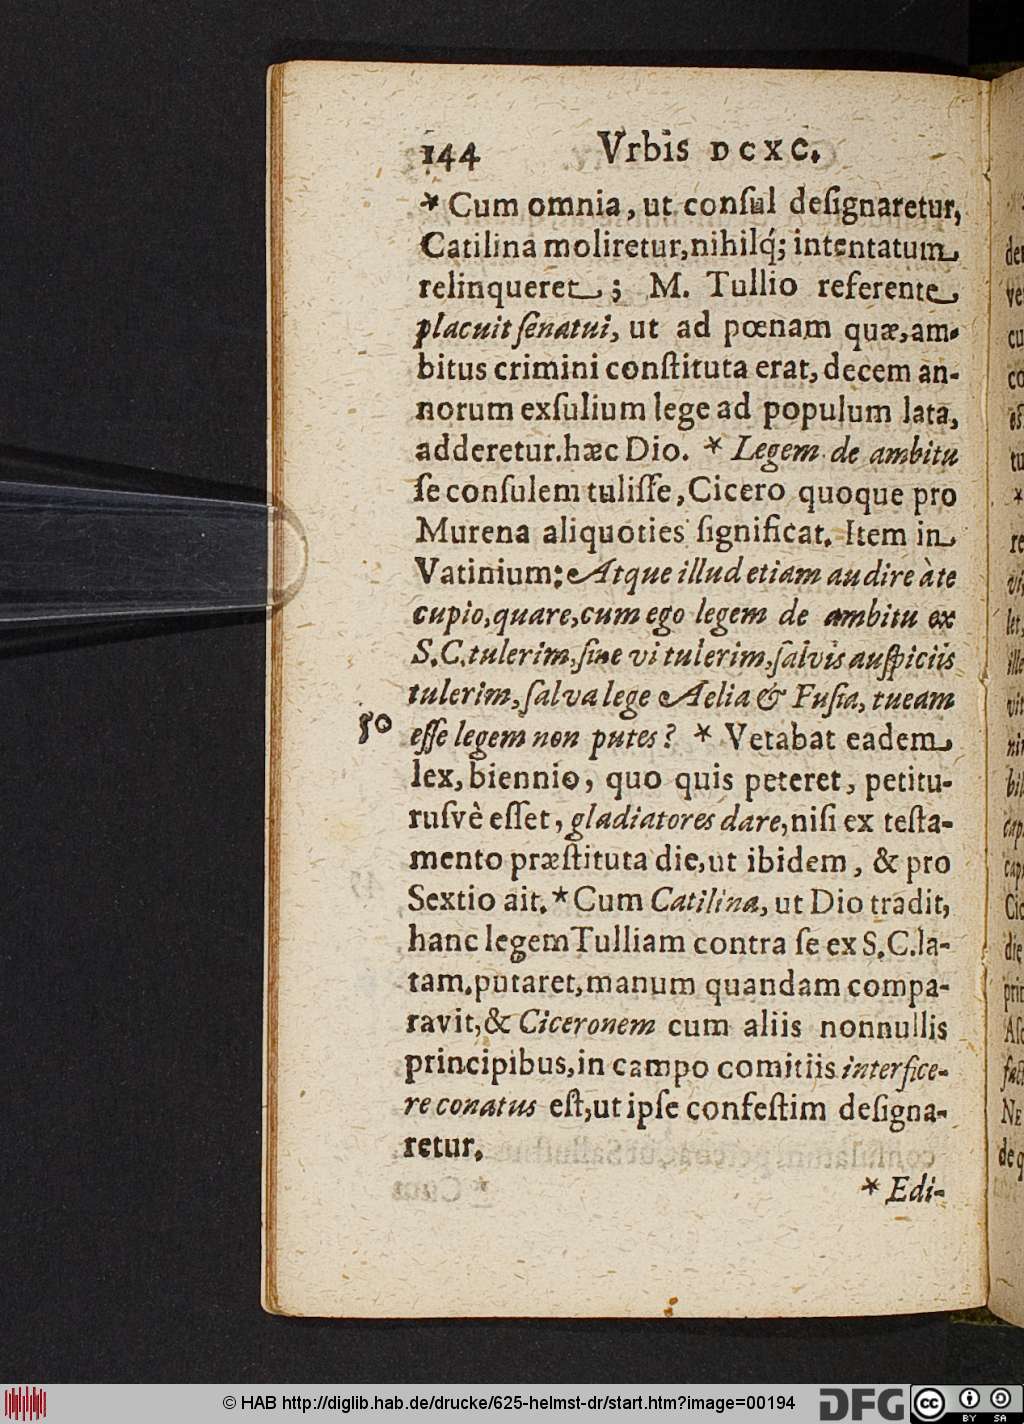 144 Vrbis DCXC.
* Cum omnia, ut conſul deſignaretur,
Catilina moliretur, nihilq́; intentatum
relinqueret; M. Tullio referente
placuit ſenatui, ut ad pœnam quæ, am-
bitus crimini conſtituta erat, decem an-
norum exſulium lege ad populum lata,
adderetur. hæc Dio. * Legem de ambitu
ſe conſulem tuliſſe, Cicero quoque pro
Murena aliquoties ſignificat. Item in
Vatinium: Atque illud etiam audire à te
cupio, quare, cum ego legem de ambitu ex
S.C. tulerim, ſine vi tulerim, ſalvis auſpiciis
tulerim, ſalva lege Aelia & Fuſia, tu eam
50 eſſe legem non putes? * Vetabat eadem
lex, biennio, quo quis peteret, petitu-
ruſvè eſſet, gladiatores dare, niſi ex teſta-
mento præſtituta die, ut ibidem, & pro
Sextio ait. * Cum Catilina, ut Dio tradit,
hanc legem Tulliam contra ſe ex S.C. la-
tam. putaret, manum quandam compa-
ravit, & Ciceronem cum aliis nonnullis
principibus, in campo comitiis interfice-
re conatus eſt, ut ipſe confeſtim deſigna-
retur.
* Edi-
© HAB http://diglib.hab.de/drucke/625-helmst-dr/start.htm?image=00194
DFG
cc BY SA